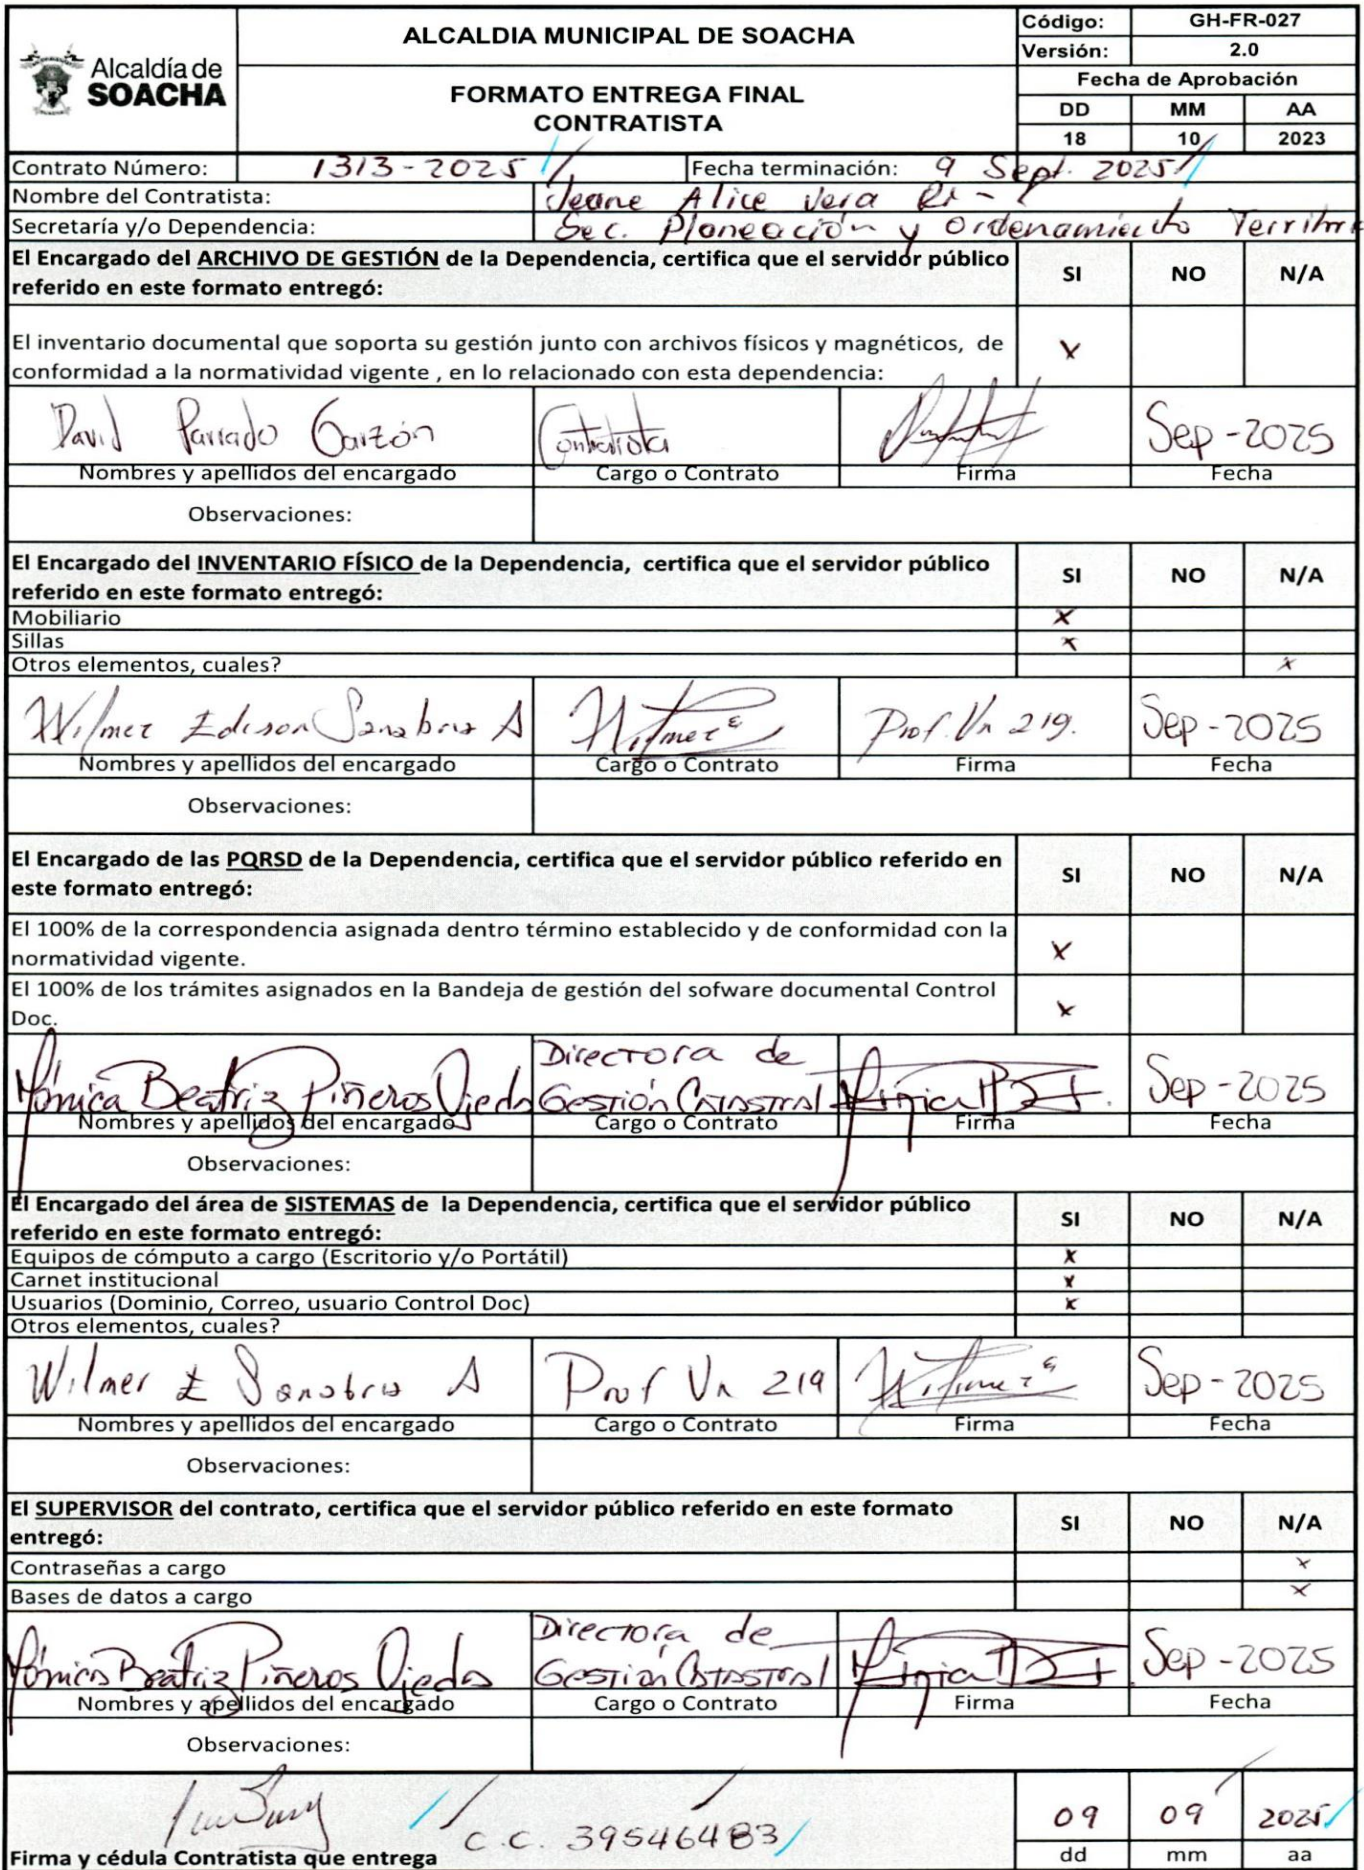 Alcaldía de
SOACHA
ALCALDIA MUNICIPAL DE SOACHA
Código: GH-FR-027
Versión: 2.0
FORMATO ENTREGA FINAL
CONTRATISTA
Fecha de Aprobación
DD MM AA
18 10 2023
Contrato Número: 1313-2025 Fecha terminación: 9 Sept. 2025
Nombre del Contratista: Jeane Alice Vera
Secretaría y/o Dependencia: Sec. Planeación y Ordenamiento
El Encargado del ARCHIVO DE GESTIÓN de la Dependencia, certifica que el servidor público
referido en este formato entregó: SI NO N/A
El inventario documental que soporta su gestión junto con archivos físicos y magnéticos, de
conformidad a la normatividad vigente , en lo relacionado con esta dependencia: X
David Parrado Garzón Contratista Sep-2025
Nombres y apellidos del encargado Cargo o Contrato Firma Fecha
Observaciones:
El Encargado del INVENTARIO FÍSICO de la Dependencia, certifica que el servidor público
referido en este formato entregó: SI NO N/A
Mobiliario X
Sillas X
Otros elementos, cuales? X
Wilmer Edison Sanabria A Wilmer E Prof. Un 219. Sep-2025
Nombres y apellidos del encargado Cargo o Contrato Firma Fecha
Observaciones:
El Encargado de las PQRSD de la Dependencia, certifica que el servidor público referido en
este formato entregó: SI NO N/A
El 100% de la correspondencia asignada dentro término establecido y de conformidad con la
normatividad vigente. X
El 100% de los trámites asignados en la Bandeja de gestión del sofware documental Control
Doc. X
Mónica Beatriz Piñeros Ojeda Directora de Gestión Catastral Sep-2025
Nombres y apellidos del encargado Cargo o Contrato Firma Fecha
Observaciones:
El Encargado del área de SISTEMAS de la Dependencia, certifica que el servidor público
referido en este formato entregó: SI NO N/A
Equipos de cómputo a cargo (Escritorio y/o Portátil) X
Carnet institucional X
Usuarios (Dominio, Correo, usuario Control Doc) X
Otros elementos, cuales?
Wilmer E Sanabria A Prof Un 219 Wilmer E Sep-2025
Nombres y apellidos del encargado Cargo o Contrato Firma Fecha
Observaciones:
El SUPERVISOR del contrato, certifica que el servidor público referido en este formato
entregó: SI NO N/A
Contraseñas a cargo X
Bases de datos a cargo X
Mónica Beatriz Piñeros Ojeda Directora de Gestión Catastral Sep-2025
Nombres y apellidos del encargado Cargo o Contrato Firma Fecha
Observaciones:
C.C. 39546483 09 09 2025
Firma y cédula Contratista que entrega dd mm aa